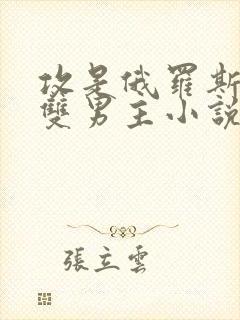 攻是俄羅斯
雙男主小說
張立雲